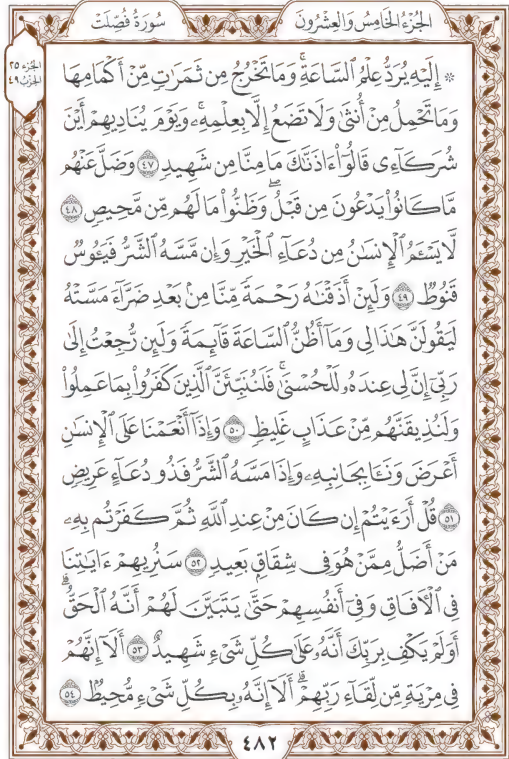 الجُزْءُ الخَامِسُ وَالعِشْرُونَ
سُورَةُ فُصِّلَتْ
الجزء ٢٥
الحزب ٤٩
۞ إِلَيْهِ يُرَدُّ عِلْمُ ٱلسَّاعَةِۚ وَمَا تَخْرُجُ مِن ثَمَرَٰتٖ مِّنۡ أَكۡمَامِهَا
وَمَا تَحۡمِلُ مِنۡ أُنثَىٰ وَلَا تَضَعُ إِلَّا بِعِلۡمِهِۦۚ وَيَوۡمَ يُنَادِيهِمۡ أَيۡنَ
شُرَكَآءِي قَالُوٓاْ ءَاذَنَّٰكَ مَا مِنَّا مِن شَهِيدٖ ٤٧ وَضَلَّ عَنۡهُم
مَّا كَانُواْ يَدۡعُونَ مِن قَبۡلُۖ وَظَنُّواْ مَا لَهُم مِّن مَّحِيصٖ ٤٨
لَّا يَسۡـَٔمُ ٱلۡإِنسَٰنُ مِن دُعَآءِ ٱلۡخَيۡرِ وَإِن مَّسَّهُ ٱلشَّرُّ فَيَـُٔوسٞ
قَنُوطٞ ٤٩ وَلَئِنۡ أَذَقۡنَٰهُ رَحۡمَةٗ مِّنَّا مِنۢ بَعۡدِ ضَرَّآءَ مَسَّتۡهُ
لَيَقُولَنَّ هَٰذَا لِي وَمَآ أَظُنُّ ٱلسَّاعَةَ قَآئِمَةٗ وَلَئِن رُّجِعۡتُ إِلَىٰ
رَبِّيٓ إِنَّ لِي عِندَهُۥ لَلۡحُسۡنَىٰۚ فَلَنُنَبِّئَنَّ ٱلَّذِينَ كَفَرُواْ بِمَا عَمِلُواْ
وَلَنُذِيقَنَّهُم مِّنۡ عَذَابٍ غَلِيظٖ ٥٠ وَإِذَآ أَنۡعَمۡنَا عَلَى ٱلۡإِنسَٰنِ
أَعۡرَضَ وَنَـَٔا بِجَانِبِهِۦ وَإِذَا مَسَّهُ ٱلشَّرُّ فَذُو دُعَآءٍ عَرِيضٖ
٥١ قُلۡ أَرَءَيۡتُمۡ إِن كَانَ مِنۡ عِندِ ٱللَّهِ ثُمَّ كَفَرۡتُم بِهِۦ
مَنۡ أَضَلُّ مِمَّنۡ هُوَ فِي شِقَاقِۭ بَعِيدٖ ٥٢ سَنُرِيهِمۡ ءَايَٰتِنَا
فِي ٱلۡأٓفَاقِ وَفِيٓ أَنفُسِهِمۡ حَتَّىٰ يَتَبَيَّنَ لَهُمۡ أَنَّهُ ٱلۡحَقُّۗ
أَوَلَمۡ يَكۡفِ بِرَبِّكَ أَنَّهُۥ عَلَىٰ كُلِّ شَيۡءٖ شَهِيدٌ ٥٣ أَلَآ إِنَّهُمۡ
فِي مِرۡيَةٖ مِّن لِّقَآءِ رَبِّهِمۡۗ أَلَآ إِنَّهُۥ بِكُلِّ شَيۡءٖ مُّحِيطُۢ ٥٤
٤٨٢